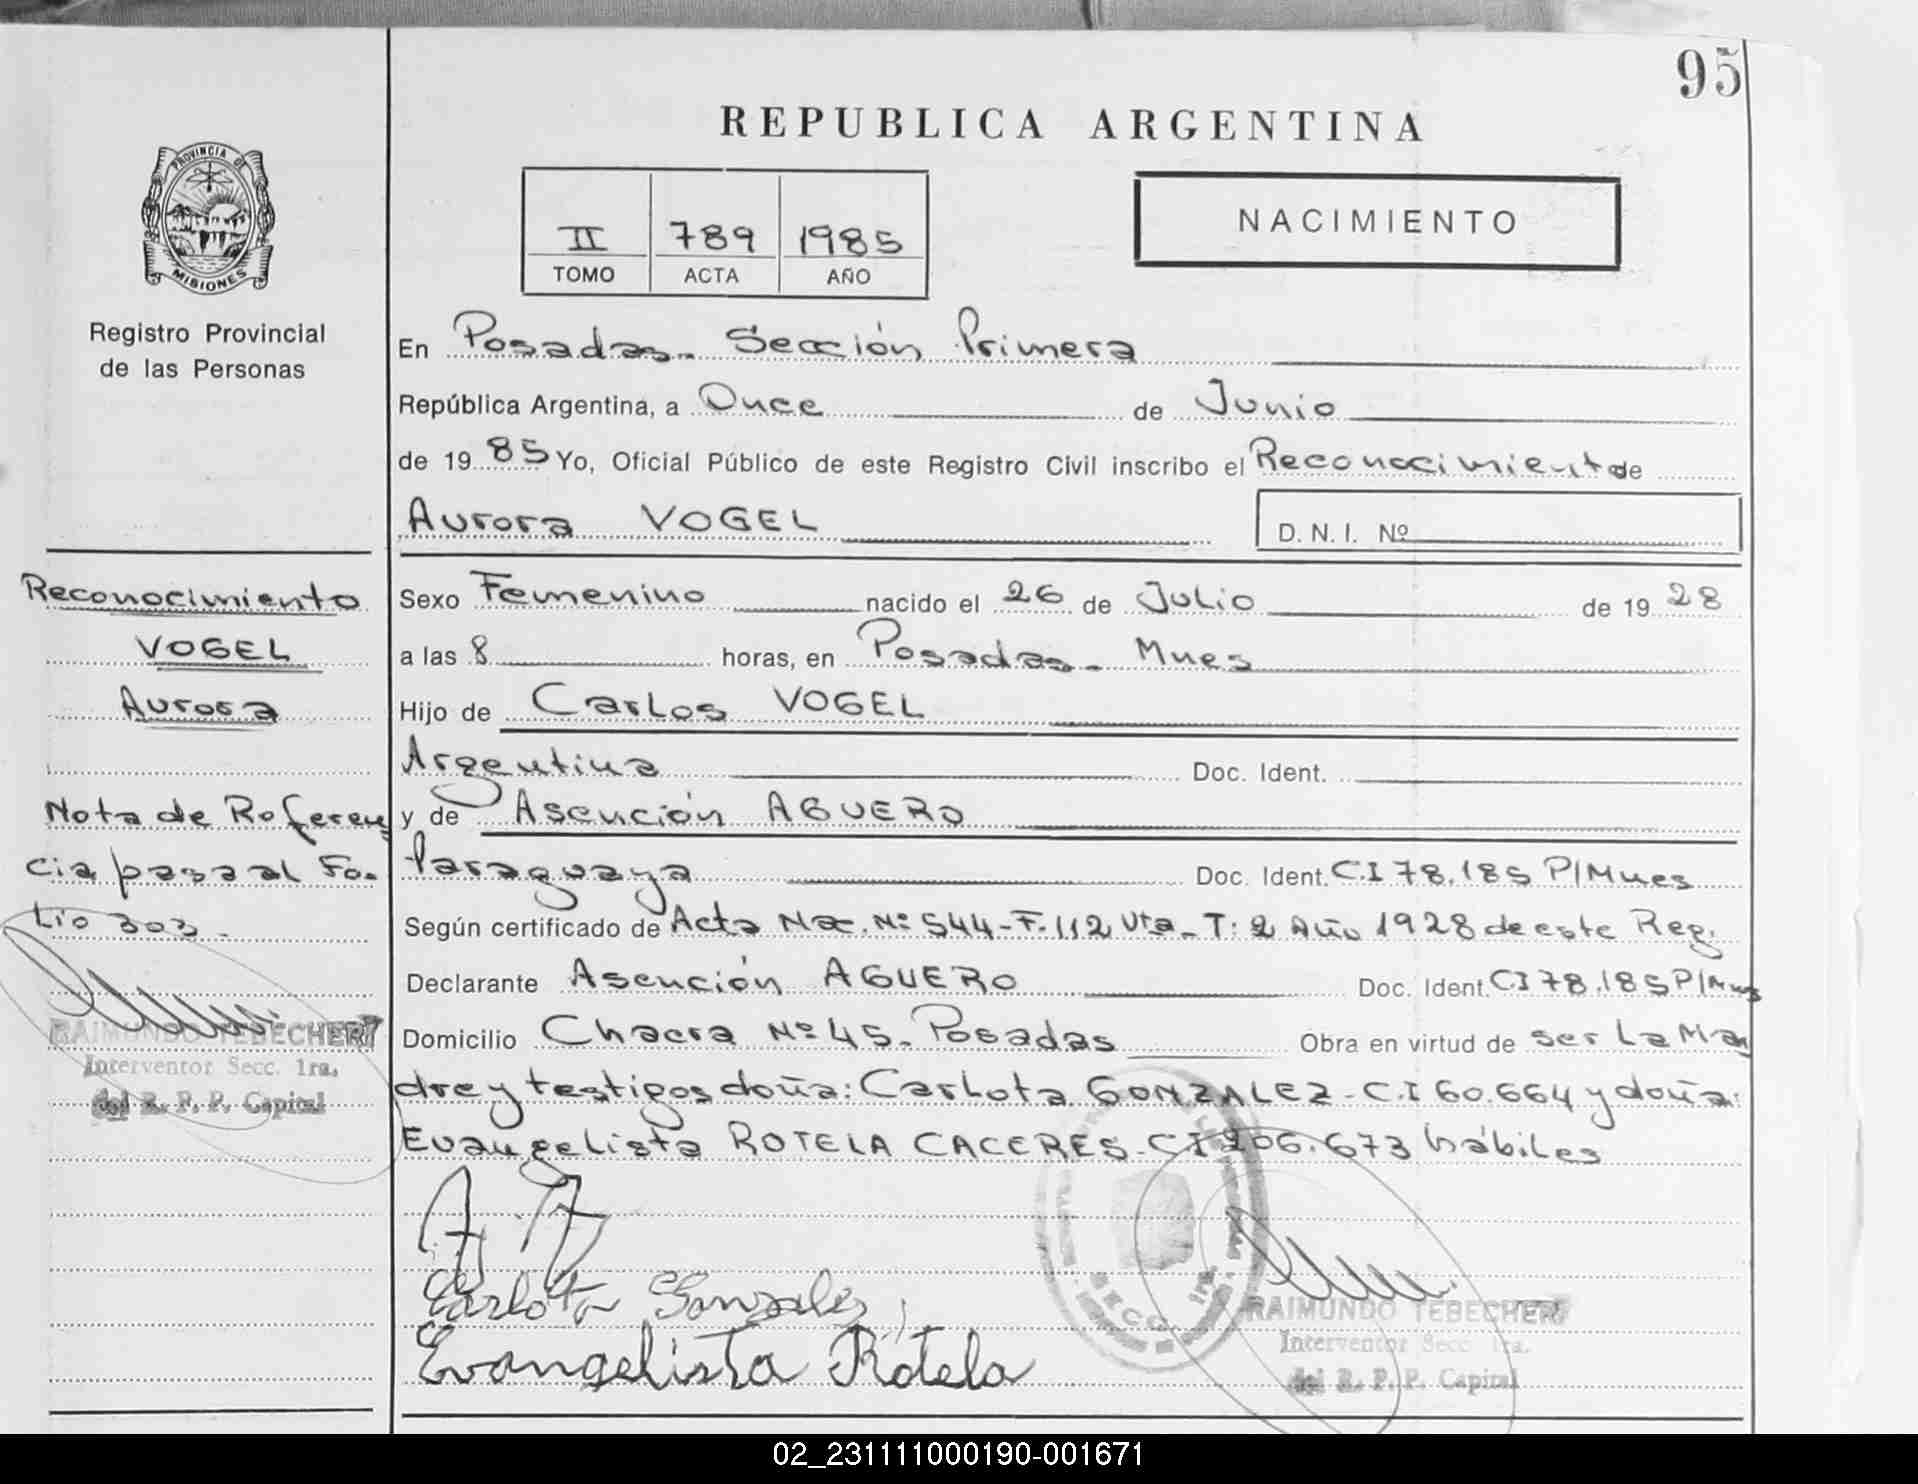 95
REPUBLICA ARGENTINA
PROVINCIA DE
MISIONES
Registro Provincial
de las Personas
II 789 1985
TOMO ACTA AÑO
NACIMIENTO
En Posadas. Sección Primera
República Argentina, a Once de Junio
de 1985 Yo, Oficial Público de este Registro Civil inscribo el Reconocimiento de
Aurora VOGEL D. N. I. Nº
Sexo Femenino nacido el 26 de Julio de 1928
a las 8 horas, en Posadas. Mnes
Hijo de Carlos VOGEL
Argentina Doc. Ident.
y de Asención AGUERO
Paraguaya Doc. Ident. C.I 78.185 P/Mnes
Según certificado de Acta Nac. Nº 544-F.112 Vta_T: 2 Año 1928 de este Reg.
Declarante Asención AGUERO Doc. Ident. C.I 78.185 P/Mnes
Domicilio Chacra Nº 45. Posadas Obra en virtud de ser La Ma
dre y testigos doña: Carlota GONZALEZ-C.I 60.664 y doña:
Evangelista ROTELA CACERES-CI 206.673 hábiles
Reconocimiento
VOGEL
Aurora
Nota de Referen
cia pasa al Fo.
Lio 303.
RAIMUNDO TEBECHERI
Interventor Secc. 1ra.
del R. P. P. Capital
A. A
Carlota Gonzales
Evangelista Rotela
RAIMUNDO TEBECHERI
Interventor Secc 1ra.
del R. P. P. Capital
02_231111000190-001671